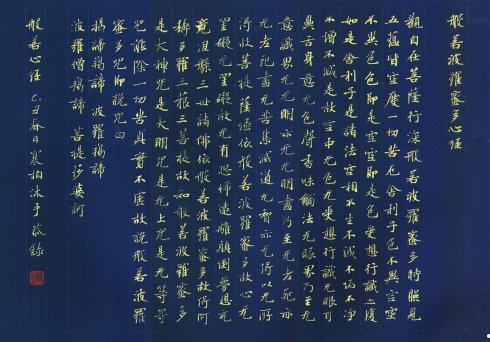 般若波羅蜜多心經
觀自在菩薩行深般若波羅蜜多時照見
五蘊皆空度一切苦厄舍利子色不異空空
不異色色即是空空即是色受想行識亦復
如是舍利子是諸法空相不生不滅不垢不淨
不增不減是故空中无色无受想行識无眼耳
鼻舌身意无色聲香味觸法无眼界乃至无
意識界无无明亦无无明盡乃至无老死亦
无老死盡无苦集滅道无智亦无得以无所
得故菩提薩埵依般若波羅蜜多故心无
罣礙无罣礙故无有恐怖遠離顛倒夢想究
竟涅槃三世諸佛依般若波羅蜜多故得阿
耨多羅三藐三菩提故知般若波羅蜜多
是大神咒是大明咒是无上咒是无等等
咒能除一切苦真實不虛故說般若波羅
蜜多咒即說咒曰
揭諦揭諦 波羅揭諦
波羅僧揭諦 菩提沙婆訶
般若心經 己丑春日 沐手敬錄